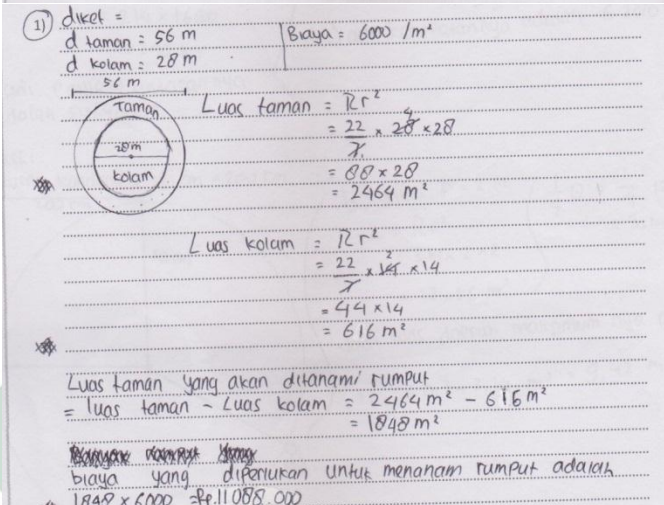 1) diket =
d taman = 56 m
Biaya = 6000 /m²
d kolam = 28 m
56 m
Taman
28m
kolam
Luas taman = πr²
= 22/7 × 28 4 × 28
= 88 × 28
= 2464 m²
Luas kolam = πr²
= 22/7 × 14 2 × 14
= 44 × 14
= 616 m²
Luas taman yang akan ditanami rumput
= luas taman - Luas kolam = 2464 m² - 616 m²
= 1848 m²
biaya yang diperlukan untuk menanam rumput adalah
1848 × 6000 = Rp.11088.000